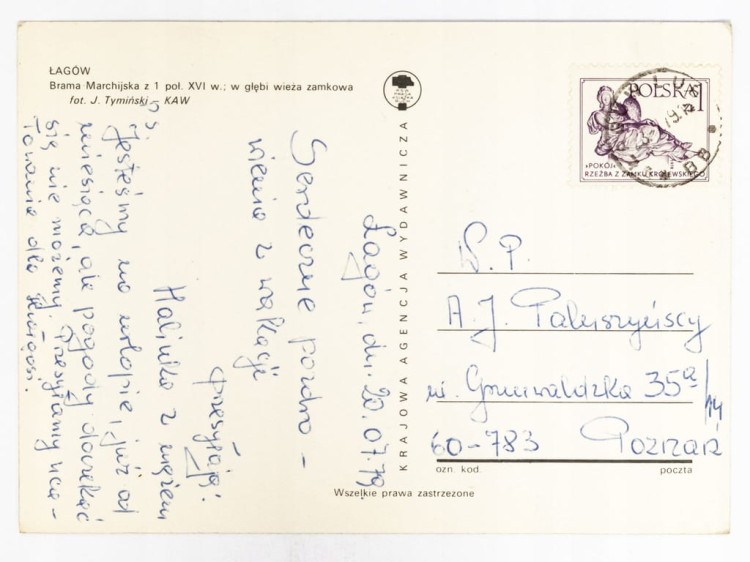 ŁAGÓW
Brama Marchijska z 1 poł. XVI w.; w głębi wieża zamkowa
fot. J. Tymiński - KAW
KRAJOWA AGENCJA WYDAWNICZA
Wszelkie prawa zastrzeżone
POLSKA 1
»POKÓJ«
RZEŹBA Z ZAMKU KRÓLEWSKIEGO
Łagów, dn. 20.07.79
Serdeczne pozdro-
wienia z wakacji
przesyłają:
Halinka z mężem
Jesteśmy na urlopie, już od
miesiąca, ale pogody doczekać
się nie możemy. Przesyłamy uca-
łowania dla
W.P.
A. J. Paluszyńscy
ul. Grunwaldzka 35a/14
60-783 Poznań
ozn. kod poczta